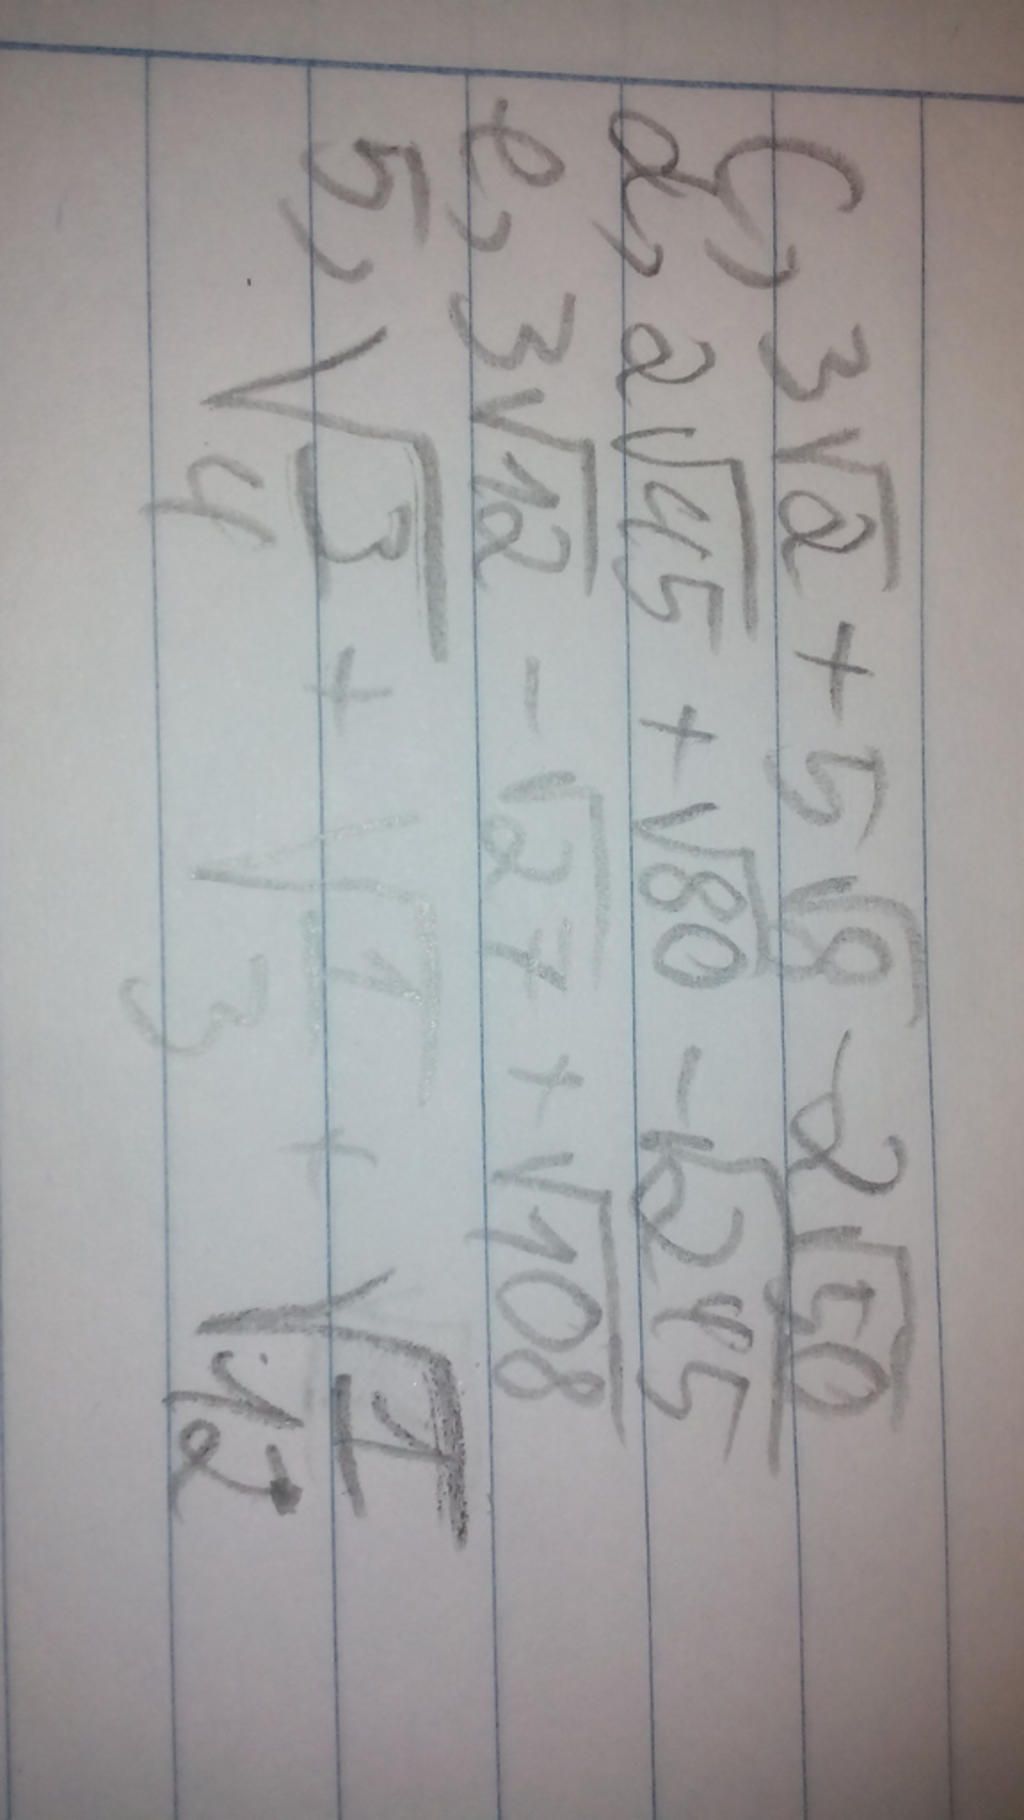 c, 3√2 + 5√8 - 2√50
d, 2√45 + √80 - √245
e, 3√12 - √27 + √108
5, √(3/4) + √(1/3) + √(1/12)